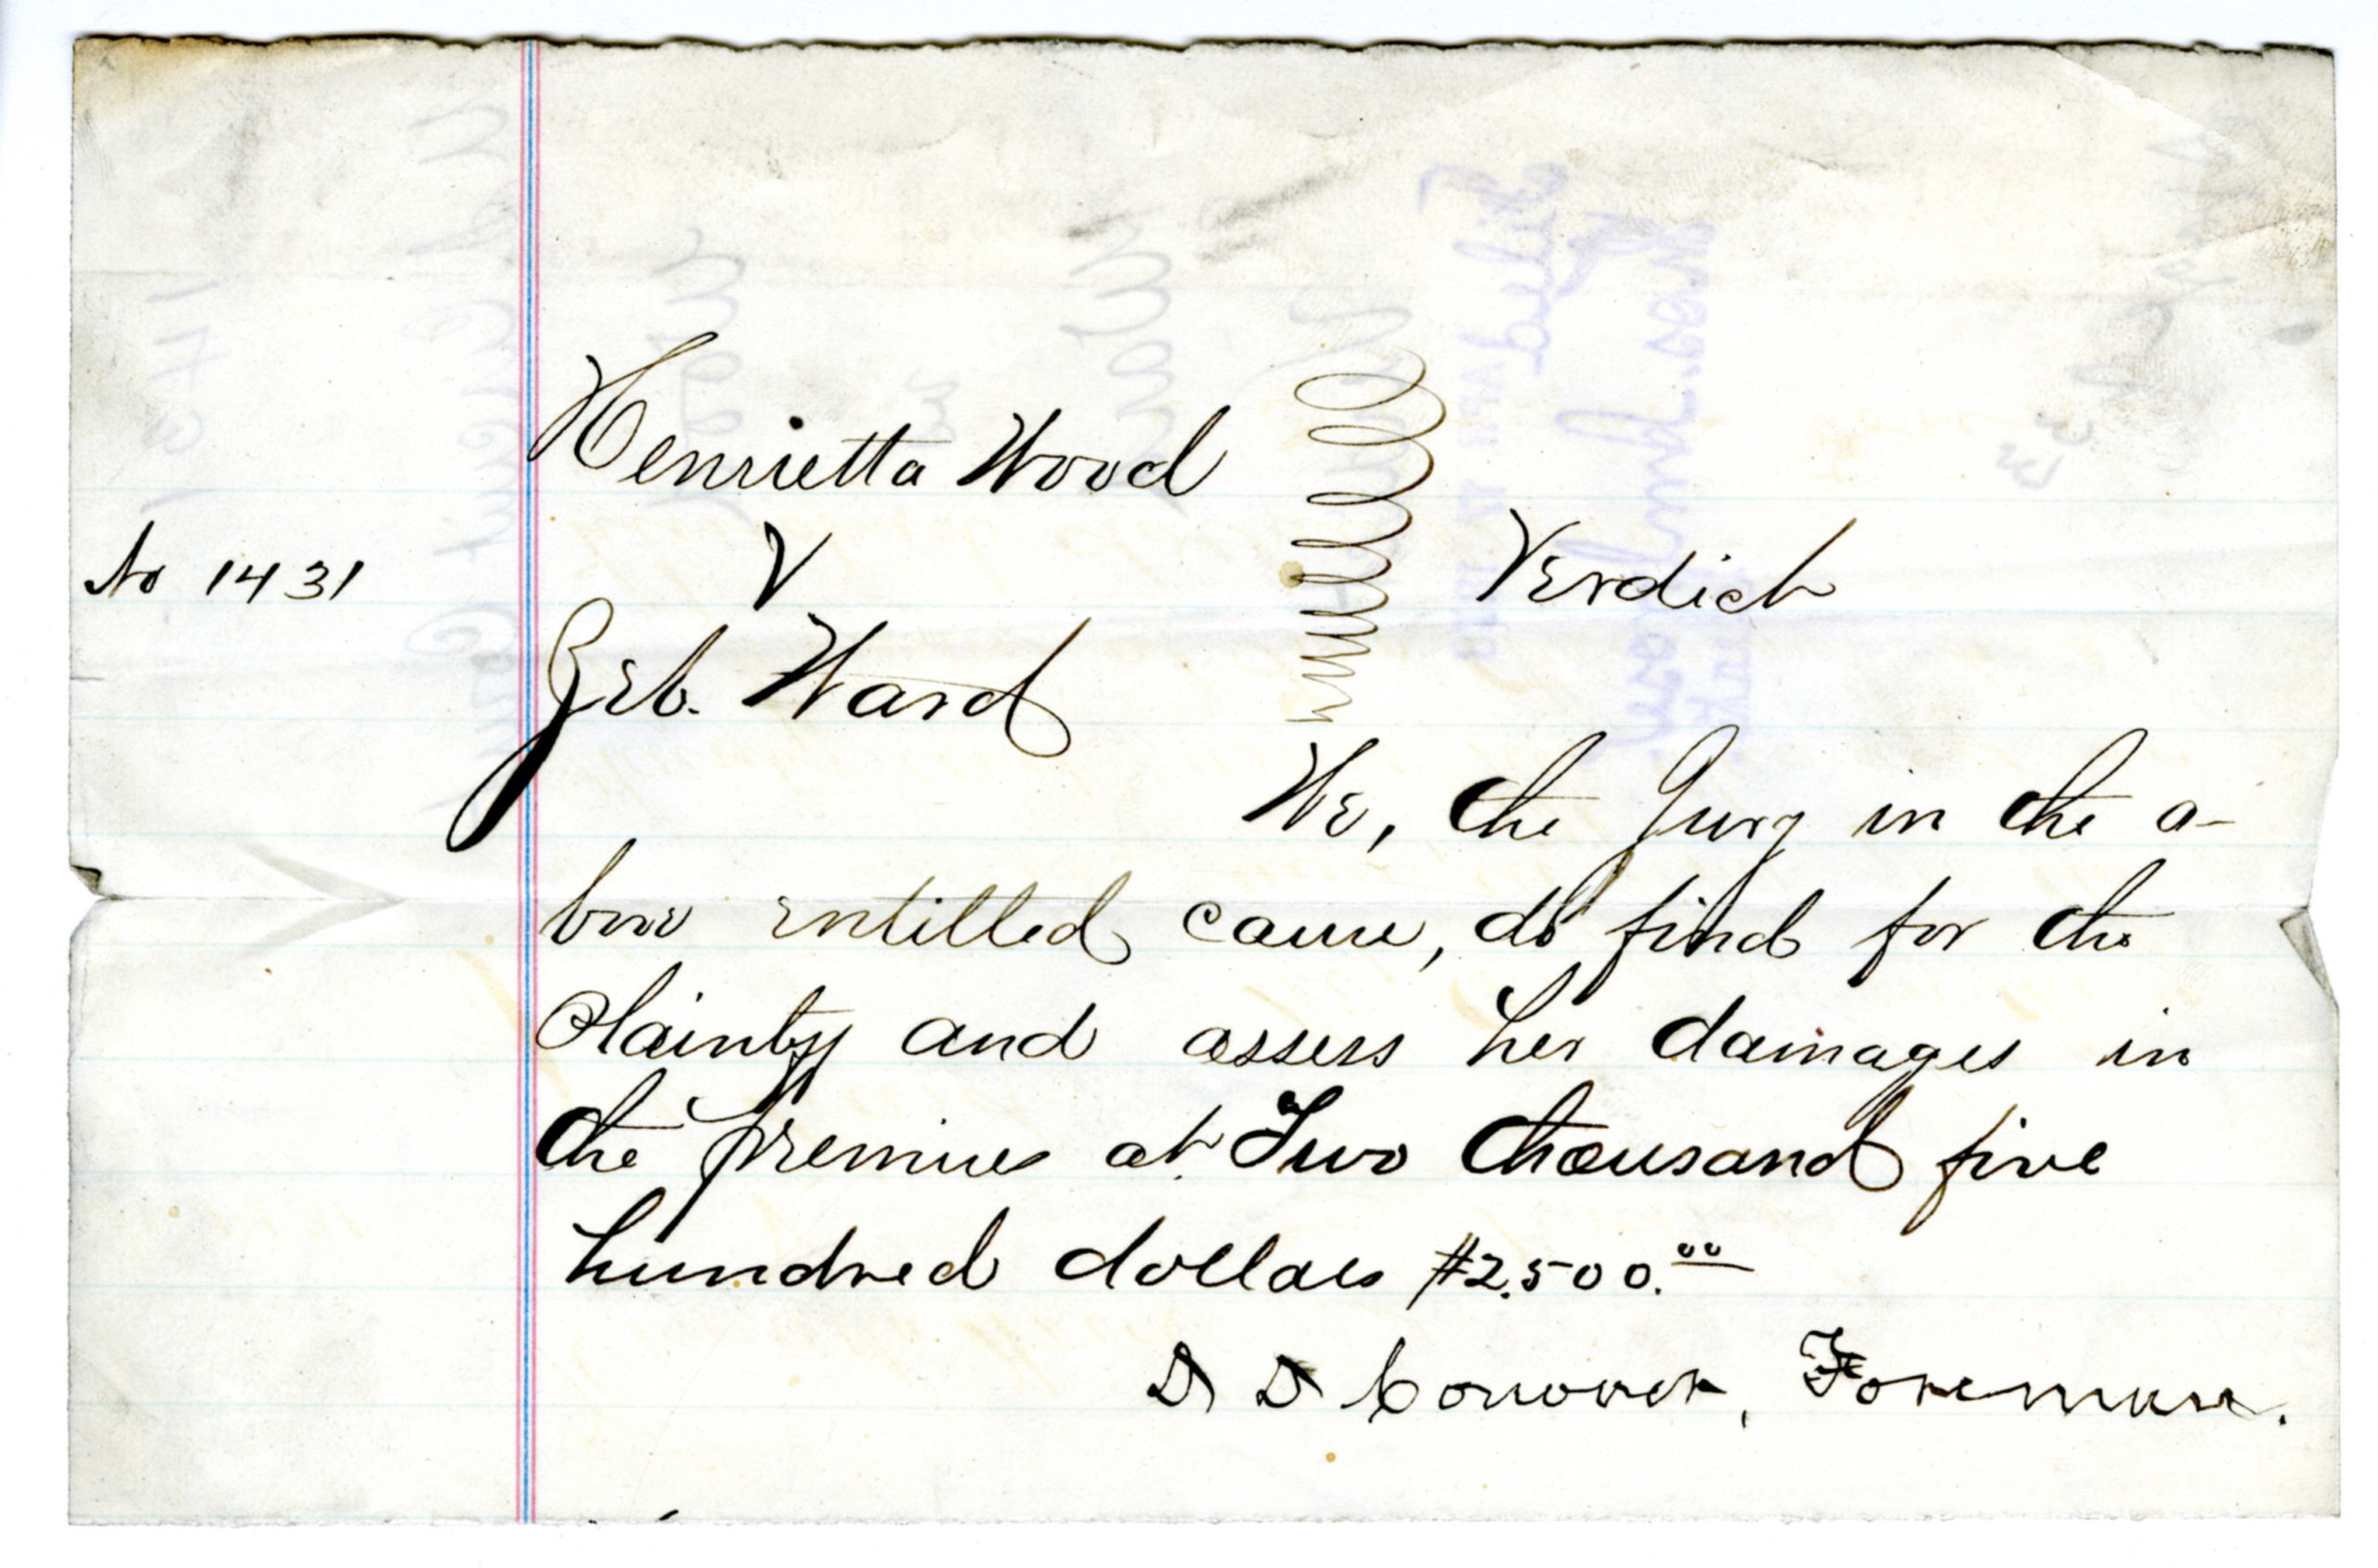 Henrietta Wood
No 1431 V Verdict
Zeb. Ward
We, the Jury in the a-
bove entitled cause, do find for the
Plaintiff and assess her damages in
the premises at Two thousand five
hundred dollars $2,500.00
D D Conover, Foreman.